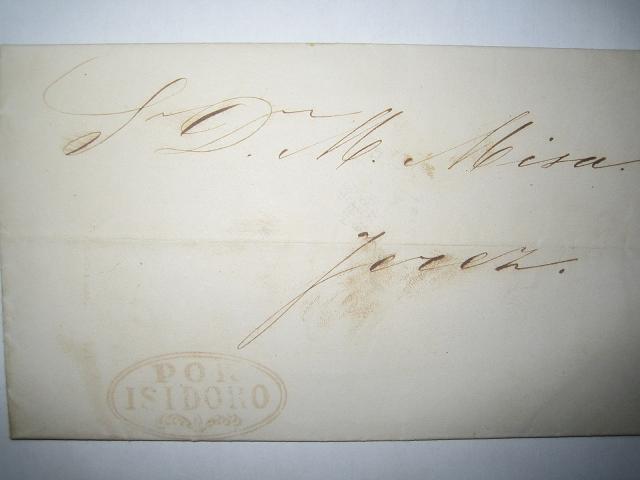 Sr Dn M. Misa.
Jerez.
POR
ISIDORO